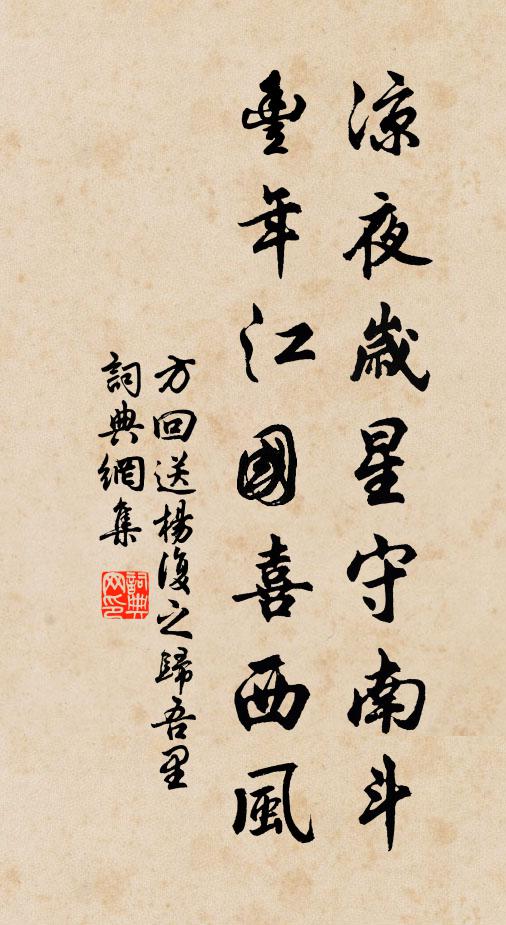 涼夜歲星守南斗
豐年江國喜西風
方回送楊復之歸吾里
詞典網集
詞典网印